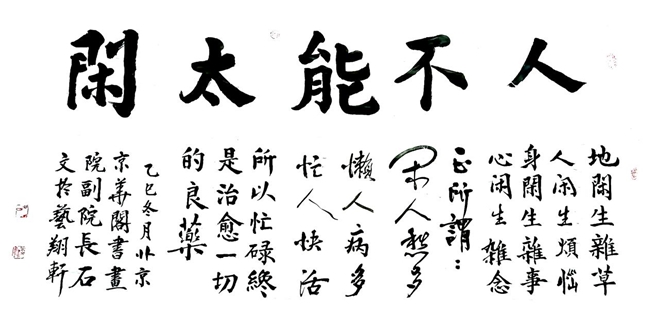 人不能太閑
地閑生雜草
人闲生煩惱
身閑生雜事
心闲生雜念
正所謂：
闲人愁多
懶人病多
忙人快活
所以忙碌終
是治愈一切
的良藥
乙巳冬月北京
京華閣書畫
院副院長石
文於藝翔軒